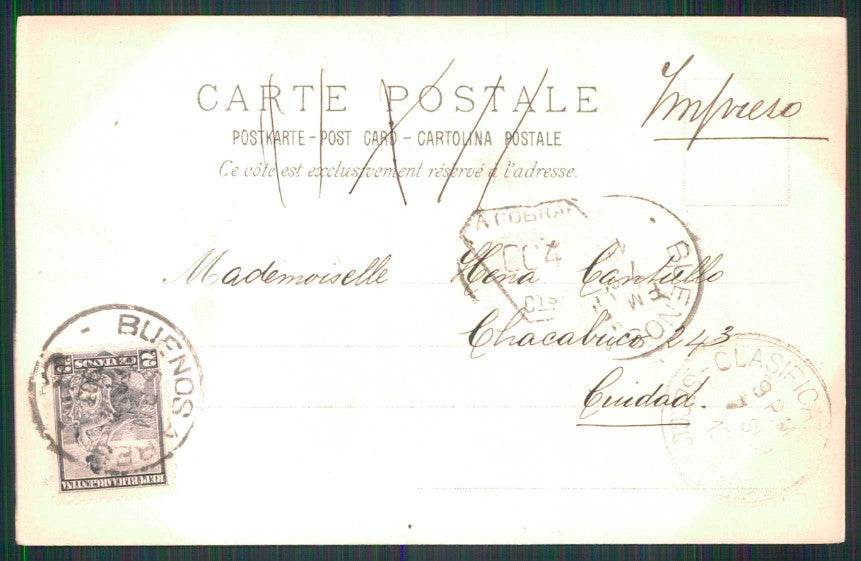 CARTE POSTALE
Impreso
POSTKARTE - POST CARD - CARTOLINA POSTALE
Ce côté est exclusivement réservé à l'adresse.
A COBRAR
004
Cts
BUENOS
Mademoiselle
Chacabuco 243
Ciudad.
BUENOS AIRES
3 CENTAVOS 3
REPUBLICA ARGENTINA
CLASIFICA
9 PM